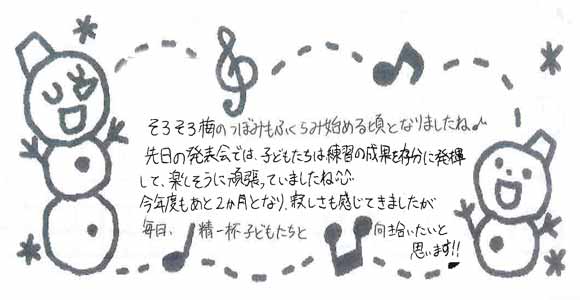 そろそろ梅のつぼみもふくらみ始める頃となりましたね♪
先日の発表会では、子どもたちは練習の成果を存分に発揮
して、楽しそうに頑張っていましたね😊
今年度もあと2か月となり、寂しさも感じてきましたが
毎日、精一杯子どもたちと向き合いたいと
思います!!